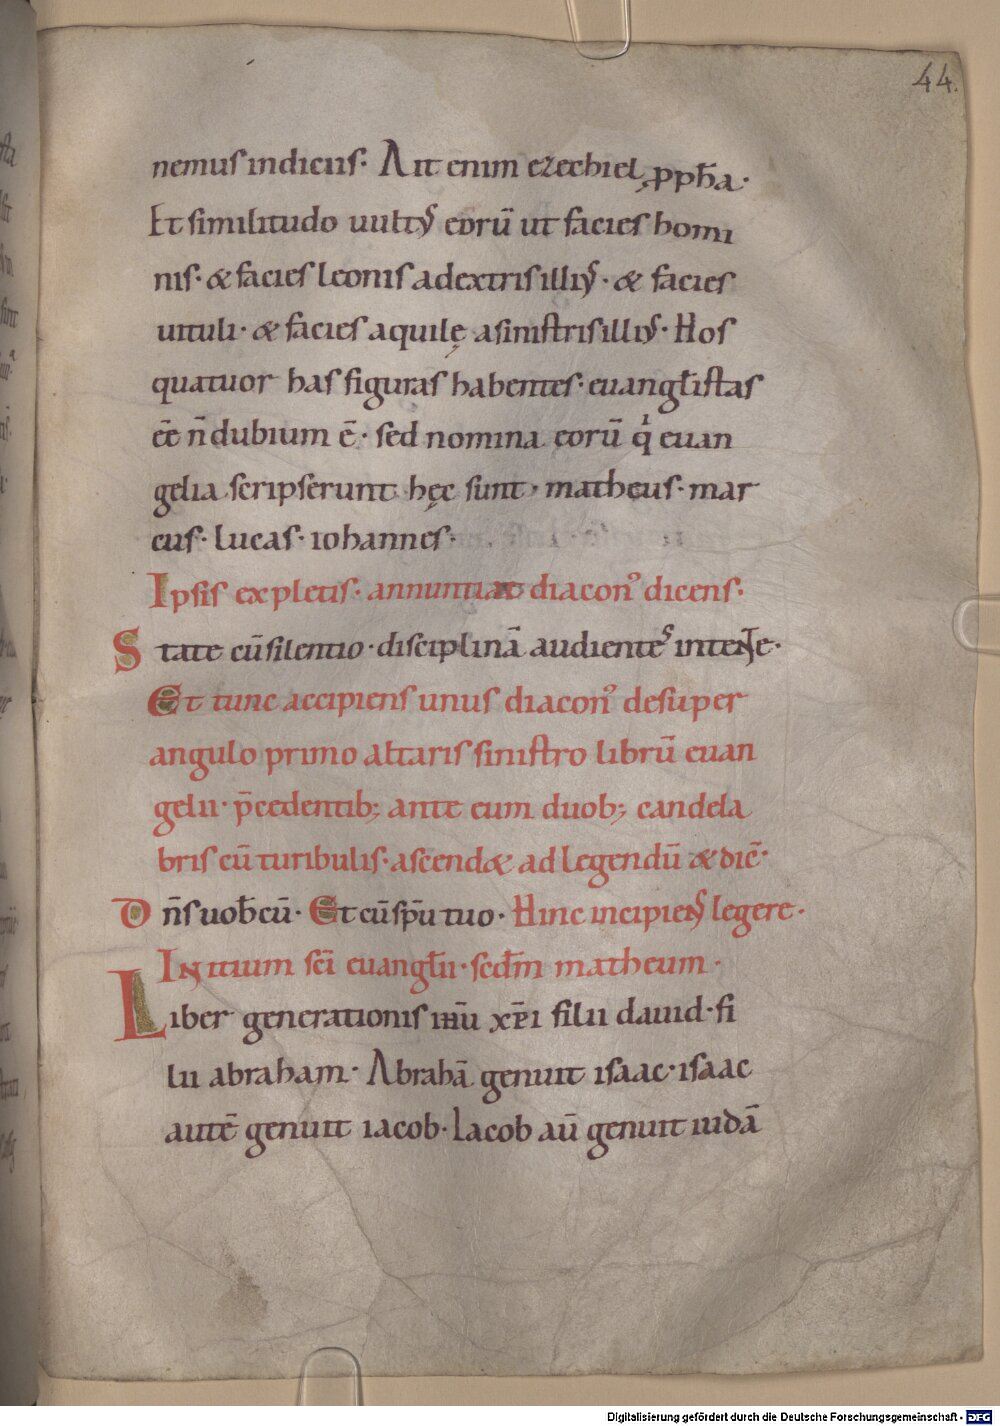 44.
nemus indiciis· Ait enim ezechiel ꝓph̄a·
Et similitudo uultꝰ eorū ut facies homi
nis· & facies leonis adextris illiꝰ· & facies
uituli· & facies aquilę asinistris illiꝰ· Hos
quatuor has figuras habentes· euangl̄istas
ēē n̄ dubium ē· sed nomina eorū qⁱ euan
gelia scripserunt hęc sunt· matheus· mar
cus· lucas· iohannes·
Ipsis expletis· annuntiat diaconꝰ dicens·
State cū silentio· disciplinā audientes intente·
Et tunc accipiens unus diaconꝰ desuper
angulo primo altaris sinistro librū euan
gelii· p̄cedentib; ante eum duob; candela
bris cū turibulis· ascend& ad legendū & dic̄·
Dn̄s uob̄cū· Et cū sp̄u tuo· Hinc incipiens legere·
Initium sc̄i euangl̄ii· scd̄m matheum·
Liber generationis ihū xp̄i filii dauid· fi
lii abraham· Abrahā genuit isaac· isaac
autē genuit iacob· Iacob aū genuit iudā
Digitalisierung gefördert durch die Deutsche Forschungsgemeinschaft - DFG